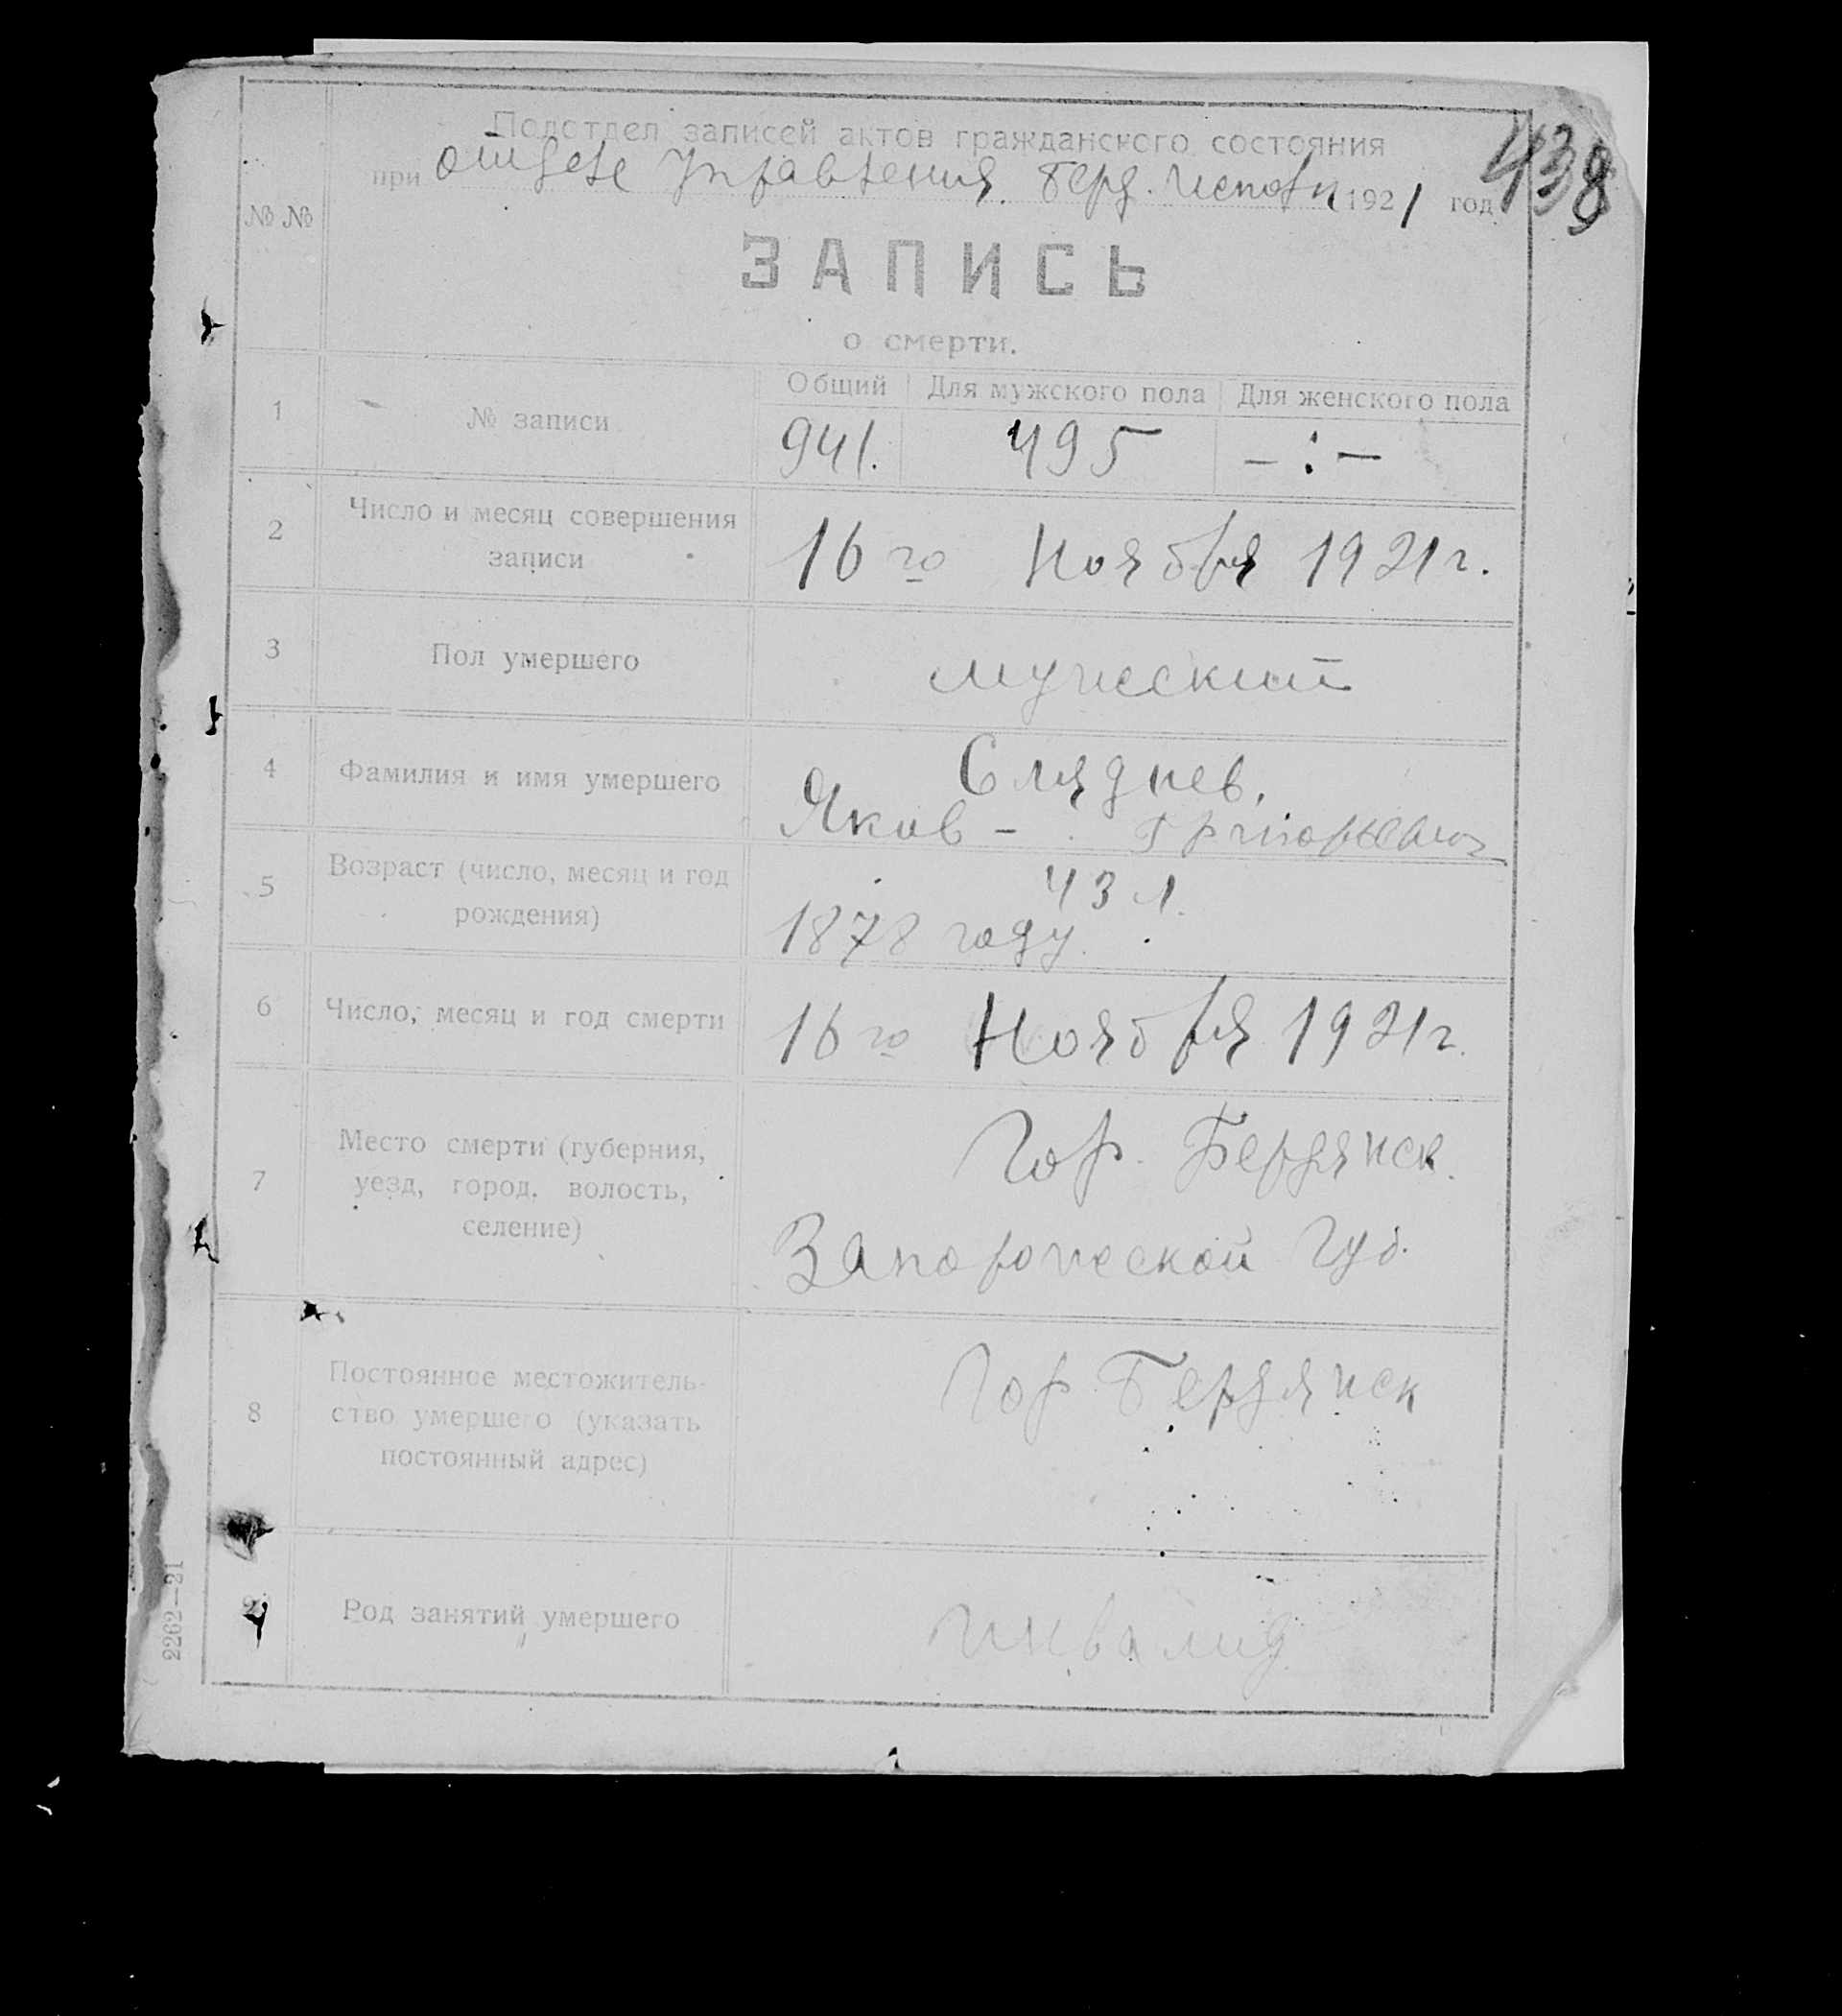 Подотдел записей актов гражданского состояния
при отделе Управления Берд. Исполк 1921 год
438
№ №
ЗАПИСЬ
о смерти.
1 № записи
Общий Для мужского пола Для женского пола
941. 495 – : –
2 Число и месяц совершения
записи
16 го Ноября 1921 г.
3 Пол умершего мужеский
4 Фамилия и имя умершего
Сляднев,
Яков – Григорьевич
5 Возраст (число, месяц и год
рождения)
43 л.
1878 году.
6 Число, месяц и год смерти 16 го Ноября 1921 г.
7 Место смерти (губерния,
уезд, город, волость,
селение)
Гор. Бердянск.
Запорожеской Губ.
8 Постоянное местожитель-
ство умершего (указать
постоянный адрес)
Гор. Бердянск
9 Род занятий умершего инвалид
2262—21